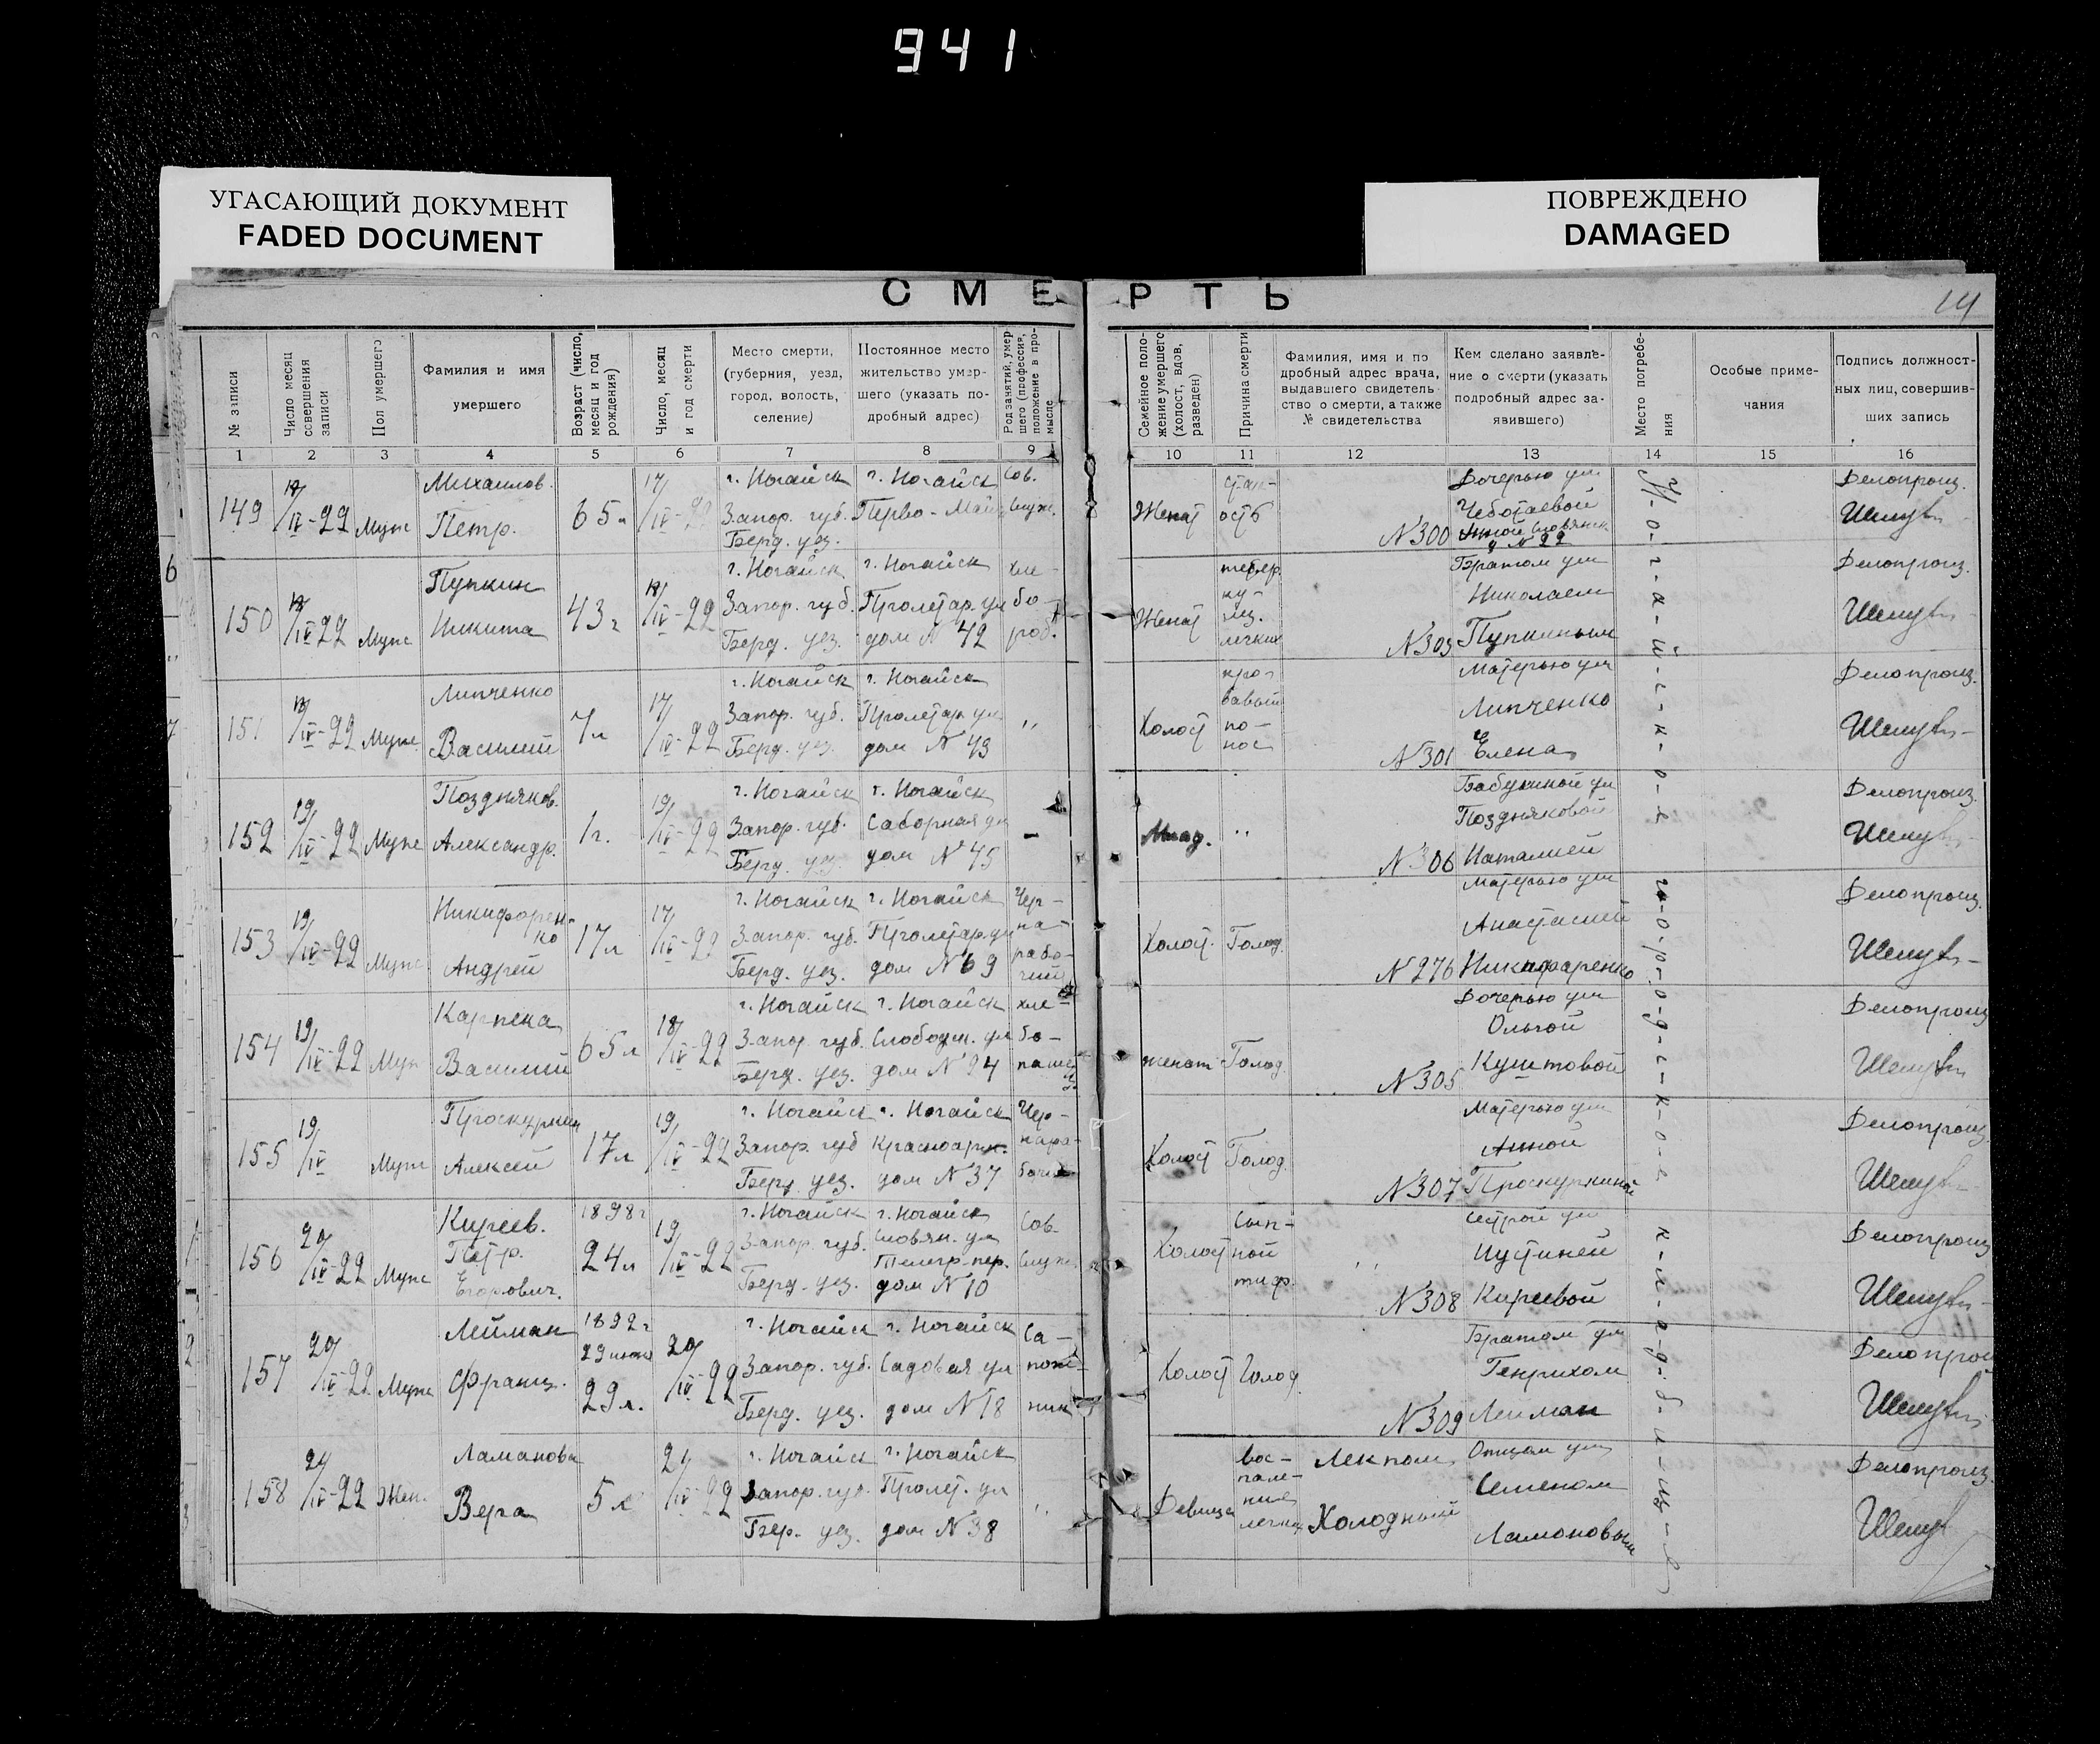 941
УГАСАЮЩИЙ ДОКУМЕНТ
FADED DOCUMENT
ПОВРЕЖДЕНО
DAMAGED
СМЕРТЬ
14
№ записи
Число месяц совершения записи
Пол умершего
Фамилия и имя умершего
Возраст (число, месяц и год рождения)
Число, месяц и год смерти
Место смерти, (губерния, уезд, город, волость, селение)
Постоянное место жительство умершего (указать подробный адрес)
Род занятий, умершего (профессия, положение в промысле
Семейное положение умершего (холост, вдов, разведен)
Причина смерти
Фамилия, имя и подробный адрес врача, выдавшего свидетельство о смерти, а также № свидетельства
Кем сделано заявление о смерти (указать подробный адрес заявившего)
Место погребения
Особые примечания
Подпись должностных лиц, совершивших запись
1 2 3 4 5 6 7 8 9 10 11 12 13 14 15 16
149
/IV-22 Муж
Михаилов.
Петр.
65л
17/IV-22
г. Ногайск
Запор. губ.
Берд. уез.
г. Ногайск
Перво-Май
Сов.
служ.
Женат
стар-
ость
N300
Дочерью ум
Чеботаевой
Анной Словянск
N 22
Делопроиз.
150
/IV-22 Муж
Пупкин
Никита
43г
18/IV-22
г. Ногайск
Запор. губ.
Берд. уез.
г. Ногайск
Пролетар. ул
дом N 42
хле-
бо-
роб.
Женат
тубер.
ку-
лез.
легких
N303
Братом ум
Николаем
Пупкиным
Делопроиз.
151
/IV-22 Муж
Липченко
Василий
7л
17/IV-22
г. Ногайск
Запор. губ.
Берд. уез.
г. Ногайск
Пролетар ул
дом N 43
"
Холост
кро-
вавый
по-
нос
N301
Матерью ум
Липченко
Елена
Делопроиз.
152
19/IV-22 Муж
Поздняков.
Александр.
1г.
19/IV-22
г. Ногайск
Запор. губ.
Берд. уез.
г. Ногайск
Саборная ул
дом N 45
-
Млад.
"
N306
Бабушкиной ум
Поздняковой
Наталией
Делопроиз.
153
19/IV-22 Муж
Никифорен-
ко
Андрей
17л
17/IV-22
г. Ногайск
Запор. губ.
Берд. уез.
г. Ногайск
Пролетар. ул
дом N 69
Чер-
на-
рабо-
чий
Холост.
Голод.
N276
Матерью ум
Анастасией
Никифаренко
Делопроиз.
154
19/IV-22 Муж
Карпека
Василий
65л
18/IV-22
г. Ногайск
Запор. губ.
Берд. уез.
г. Ногайск
Слободск. ул
дом N 24
хле-
бо-
паше
женат
Голод.
N305
Дочерью ум
Ольгой
Куштовой
Делопроиз
155
19/IV Муж
Проскурнин
Алексей
17л
19/IV-22
г. Ногайск
Запор. губ
Берд. уез.
г. Ногайск
Красноарм.
дом N 37
Чер-
нара-
боч
Холост
Голод.
N307
Матерью ум
Анной
Проскурниной
Делопроиз.
156
20/IV-22 Муж
Киреев.
Петр.
Егорович.
1898г
24л
19/IV-22
г. Ногайск
Запор. губ.
Берд. уез.
г. Ногайск
Словян. ул
Телегр. пер.
дом N 10
Сов.
служ.
Холост
Сып-
ной
тиф.
"
N308
Сестрой ум
Иустиней
Киреевой
Делопроиз
157
20/IV-22 Муж
Лейман
Франц.
1892г
29л.
20/IV-22
г. Ногайск
Запор. губ.
Берд. уез.
г. Ногайск
Садовая ул
дом N 18
Са-
пож-
ник
Холост
Голод.
N309
Братом ум
Генрихом
Лейман
Делопроиз
158
21/IV-22 Жен.
Ламанова
Вера
5л
21/IV-22
г. Ногайск
Запор. губ.
Бер. уез.
г. Ногайск
Пролет. ул
дом N 38
"
Девица
вос-
пале-
ние
легких
Лекпом
Холодный
Отцом ум
Семеном
Ламоновым
Делопроиз.
Н-о-г-а-й-с-к-о-е
г-о-р-о-д-с-к-о-е
к-л-а-д-б-и-щ-е